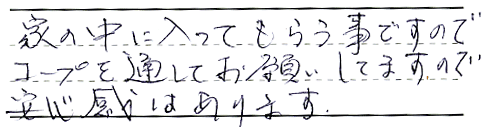 家の中に入ってもらう事ですので
コープを通してお願いしてますので
安心感はあります.